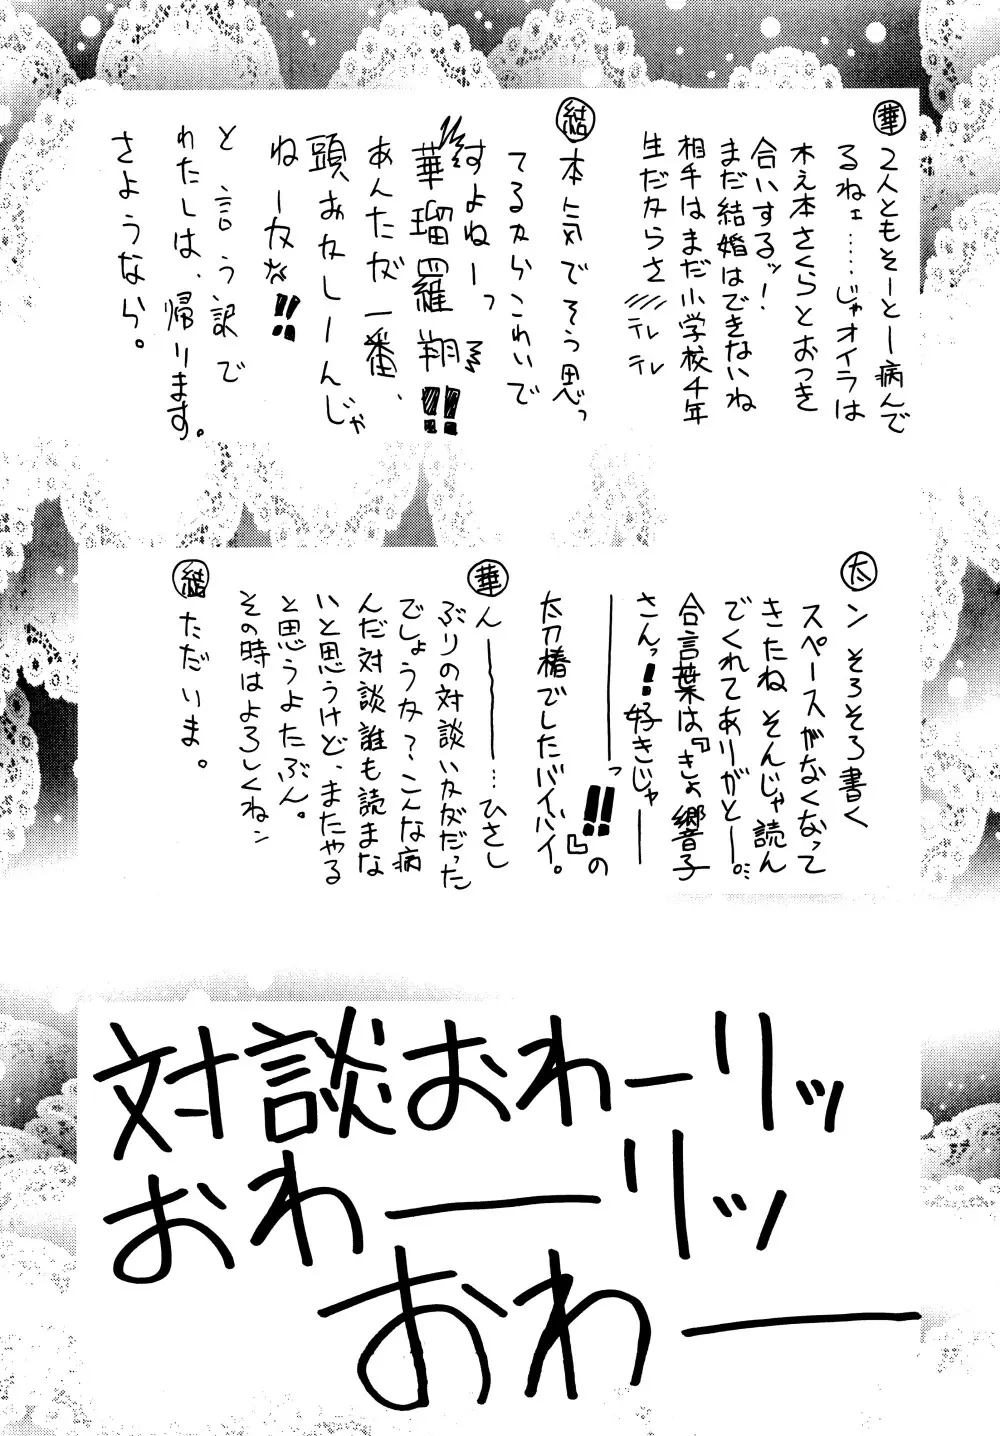 華 2人ともそーとー病んで
るねェ……じゃオイラは
木え本さくらとおつき
合いするッ!
まだ結婚はできないね
相手はまだ小学校4年
生だからさ テレテレ
結 本気でそう思っ
てるからこわいで
すよねーっ
華瑠羅翔!!
あんたが一番、
頭おかしーんじゃ
ねーか!!
と言う訳で
わたしは、帰ります。
さようなら。
太 ン そろそろ書く
スペースがなくなって
きたね そんじゃ読ん
でくれてありがとー。
合言葉は『きょ響子
さんっ!!好きじゃー
ーーーっ!!』の
太刀椿でしたバイバイ。
華 んーーー…ひさし
ぶりの対談いかがだった
でしょうか?こんな病
んだ対談誰も読まな
いと思うけど、またやる
と思うよたぶん。
その時はよろしくねン
結 ただいま。
対談おわーリッ
おわーーリッ
おわーー